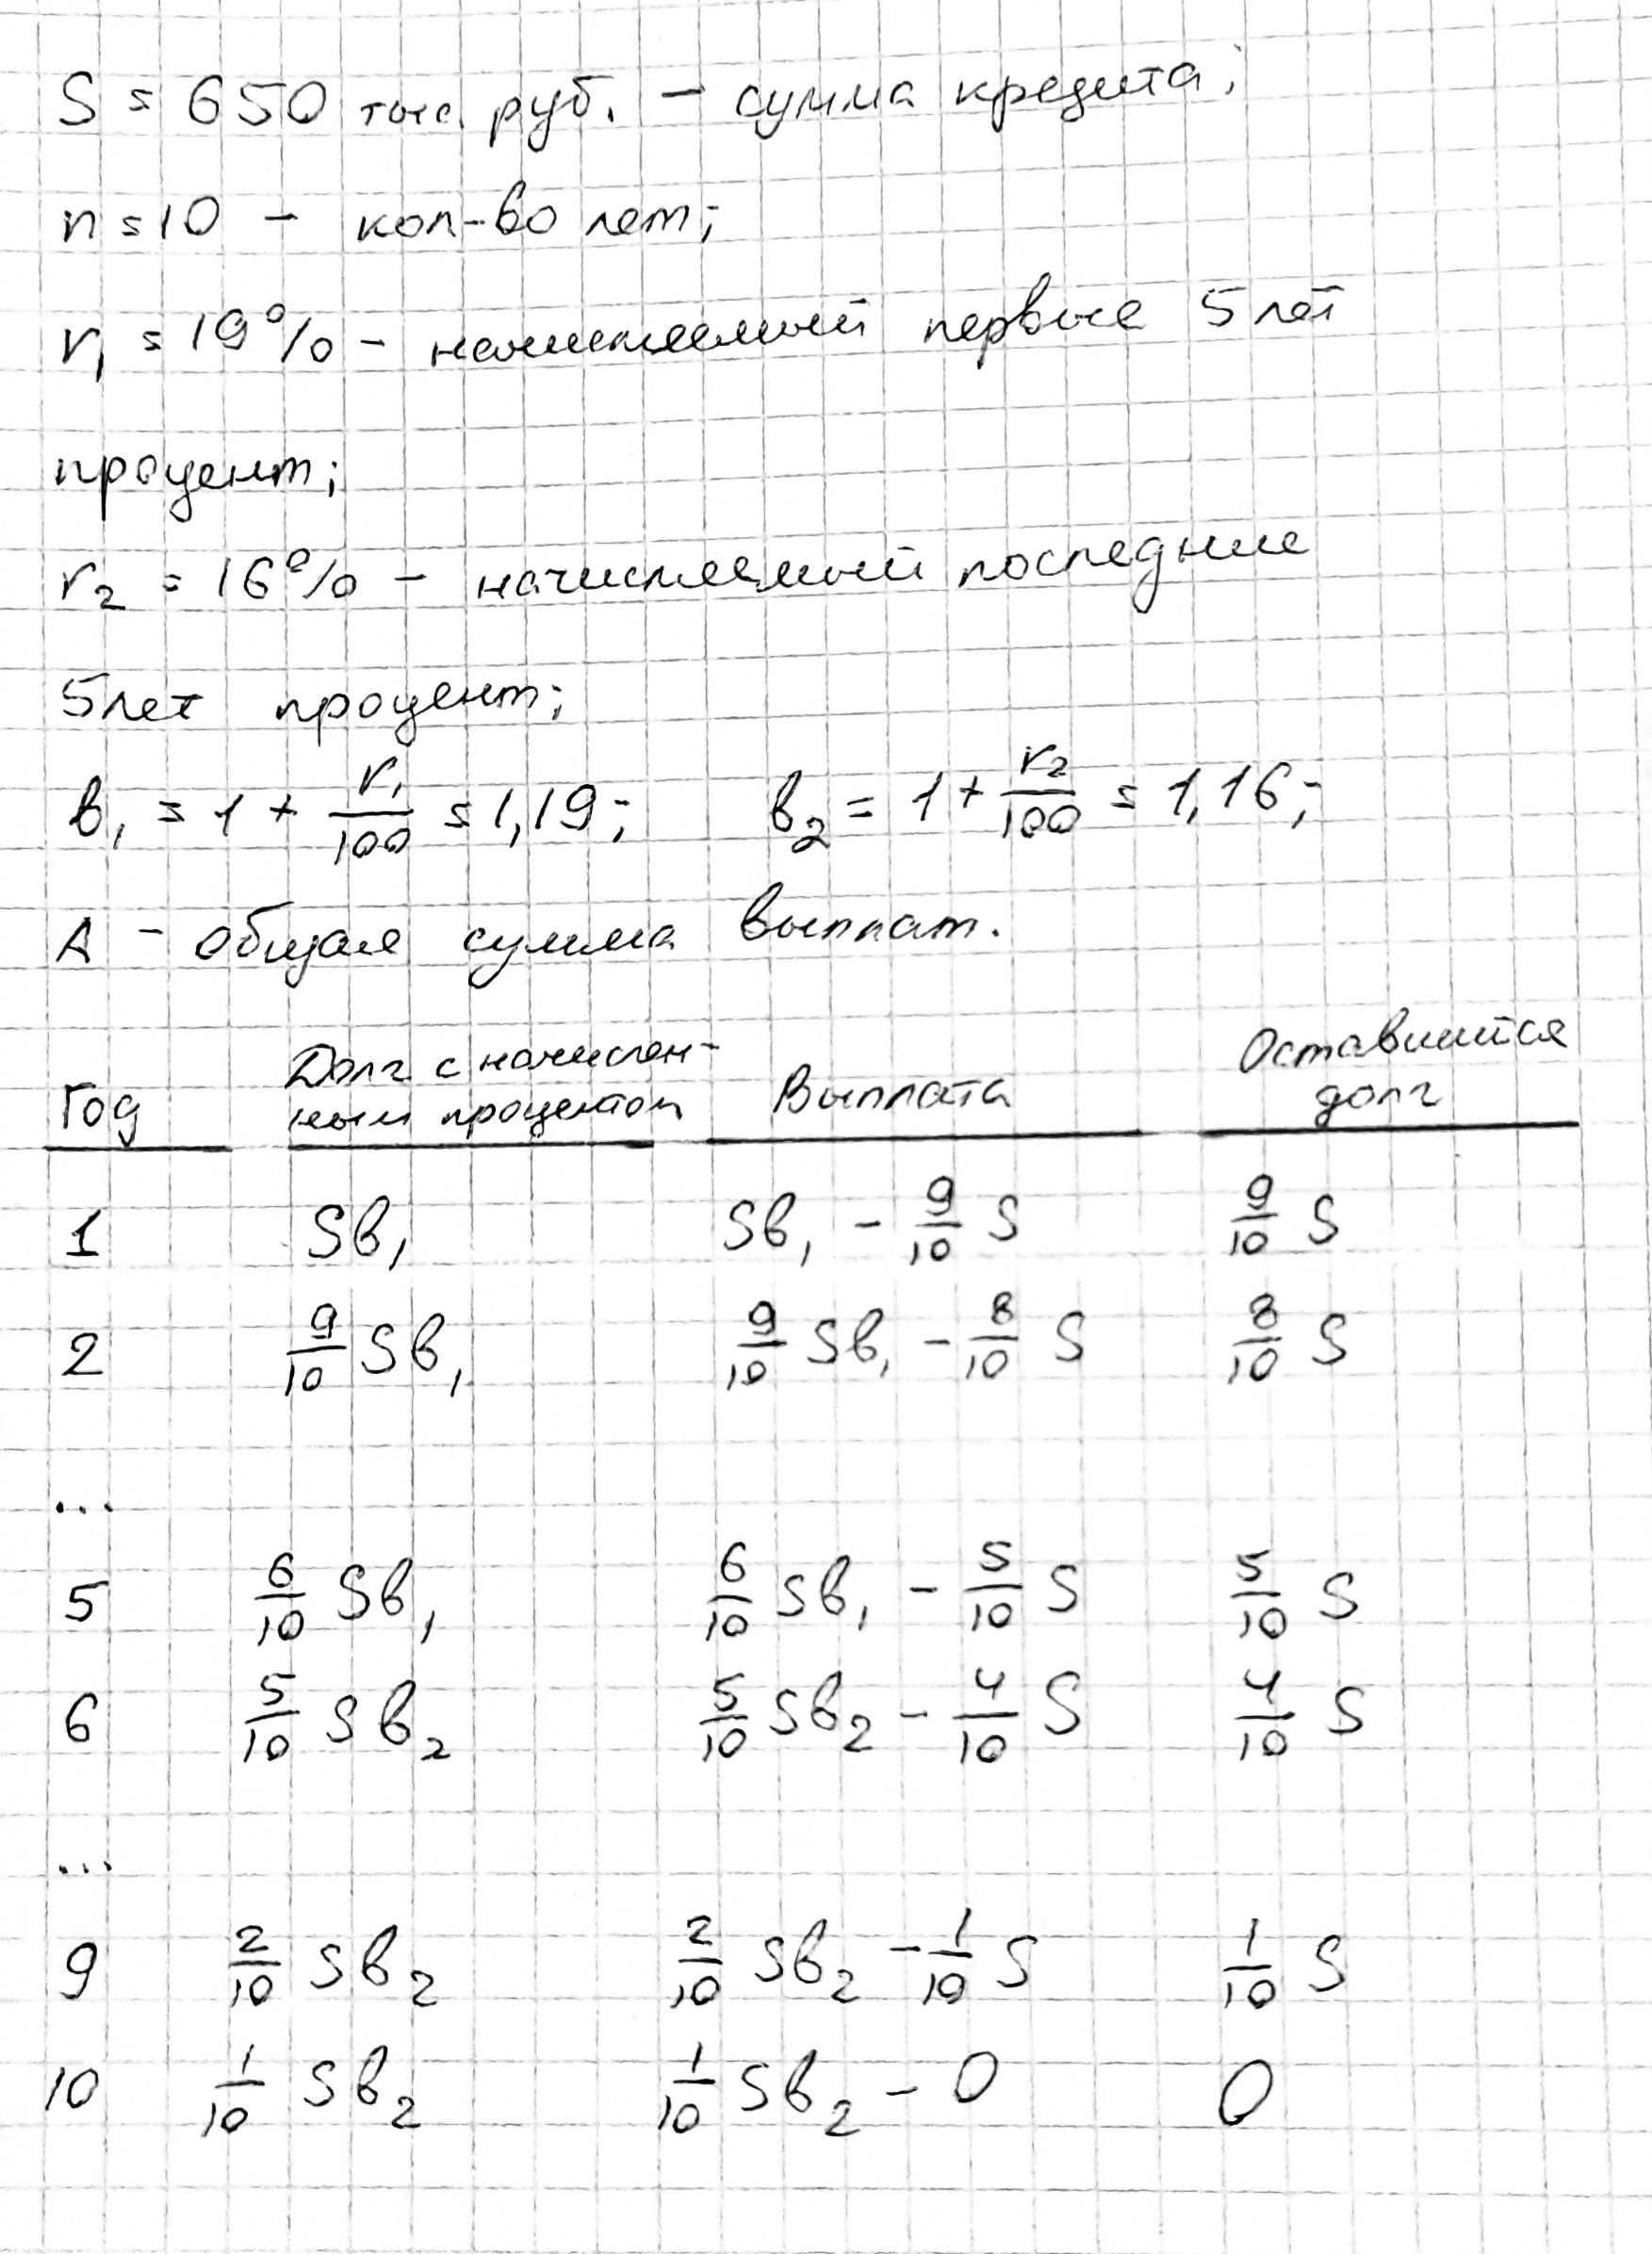 S = 650 тыс. руб. – сумма кредита;
n = 10 – кол-во лет;
r₁ = 19% – начисляемый первые 5 лет
процент;
r₂ = 16% – начисляемый последние
5 лет процент;
b₁ = 1 + r₁/100 = 1,19; b₂ = 1 + r₂/100 = 1,16;
A – общая сумма выплат.
Год Долг с начислен- Выплата Оставшийся
ным процентом долг
1 Sb₁ Sb₁ – 9/10 S 9/10 S
2 9/10 Sb₁ 9/10 Sb₁ – 8/10 S 8/10 S
...
5 6/10 Sb₁ 6/10 Sb₁ – 5/10 S 5/10 S
6 5/10 Sb₂ 5/10 Sb₂ – 4/10 S 4/10 S
...
9 2/10 Sb₂ 2/10 Sb₂ – 1/10 S 1/10 S
10 1/10 Sb₂ 1/10 Sb₂ – 0 0